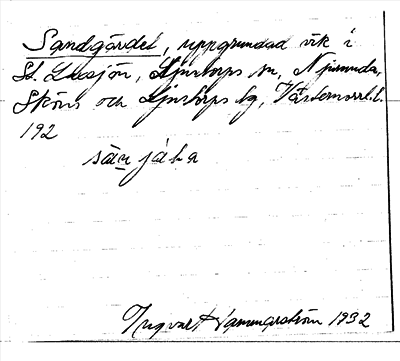 Sandgärdet, uppgrundad vik i
St. Laxsjön, Ljustorps sn, Njurunda,
Sköns och Ljustorps tg, Västernorrl. l.
192
Ingvart Hammarström 1932